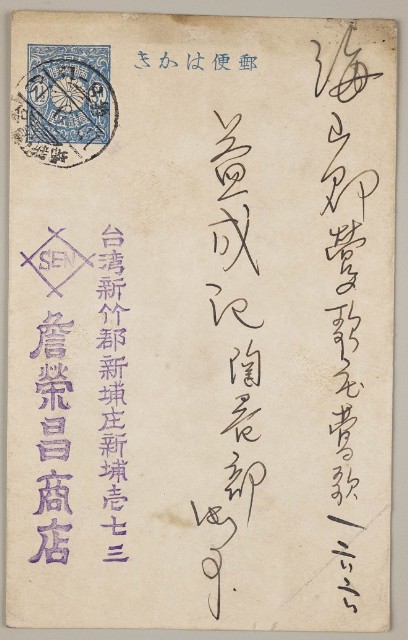 郵便はかき
海山郡鶯歌庄鶯歌一六六
益成記陶器部
台湾新竹郡新埔庄新埔壱七三
SEN
詹榮昌商店